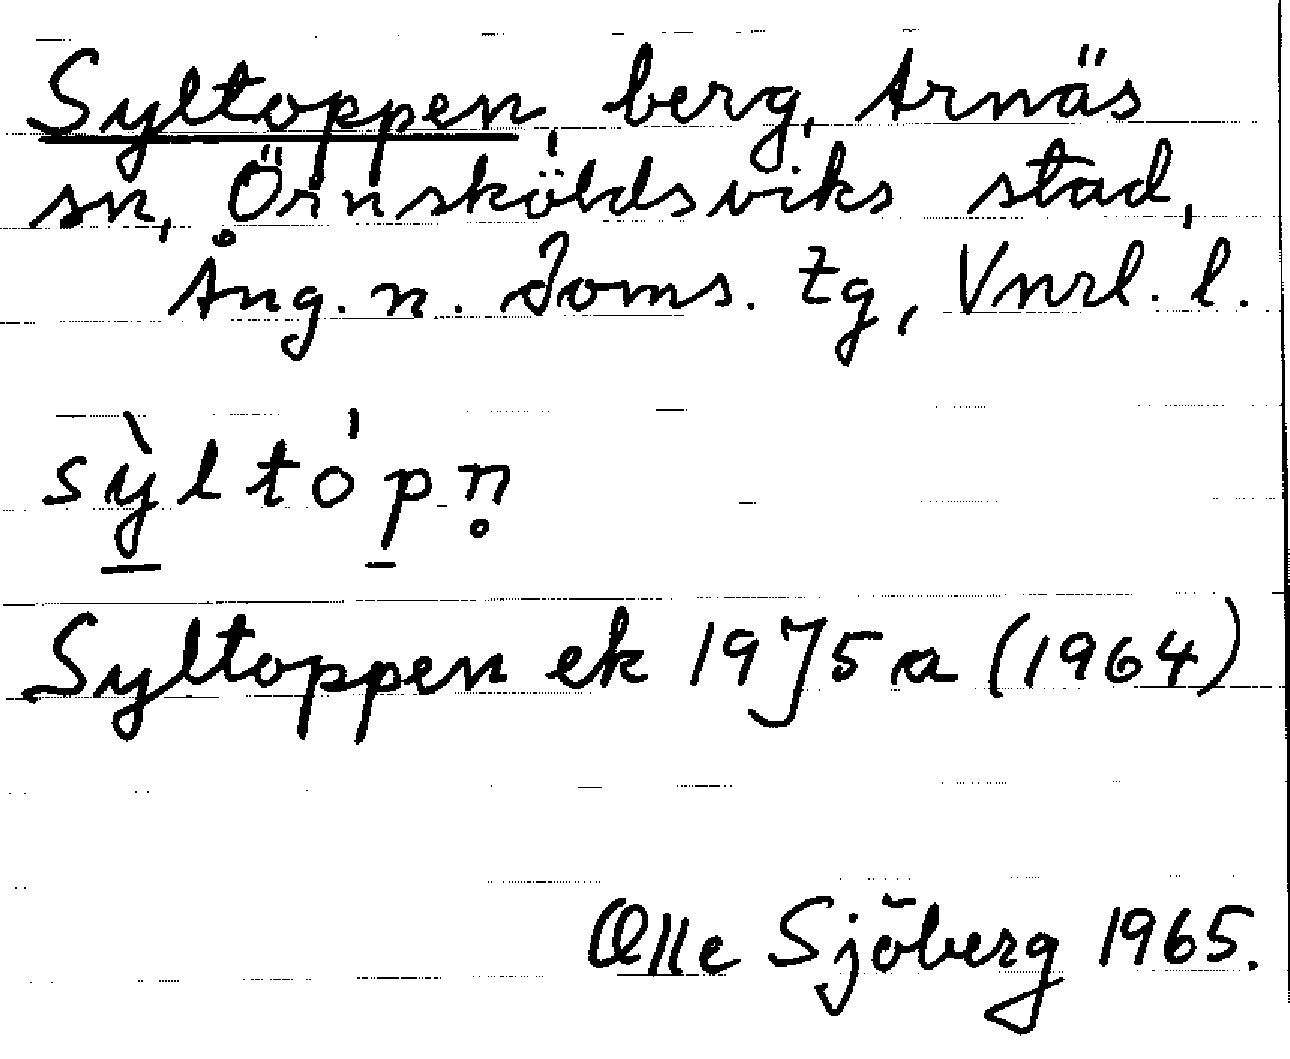 Syltoppen, berg, Arnäs
sn, Örnsköldsviks stad,
Ång. n. doms. tg, Vnrl. l.
sỳltópn̥
Syltoppen ek 19J5a (1964)
Olle Sjöberg 1965.